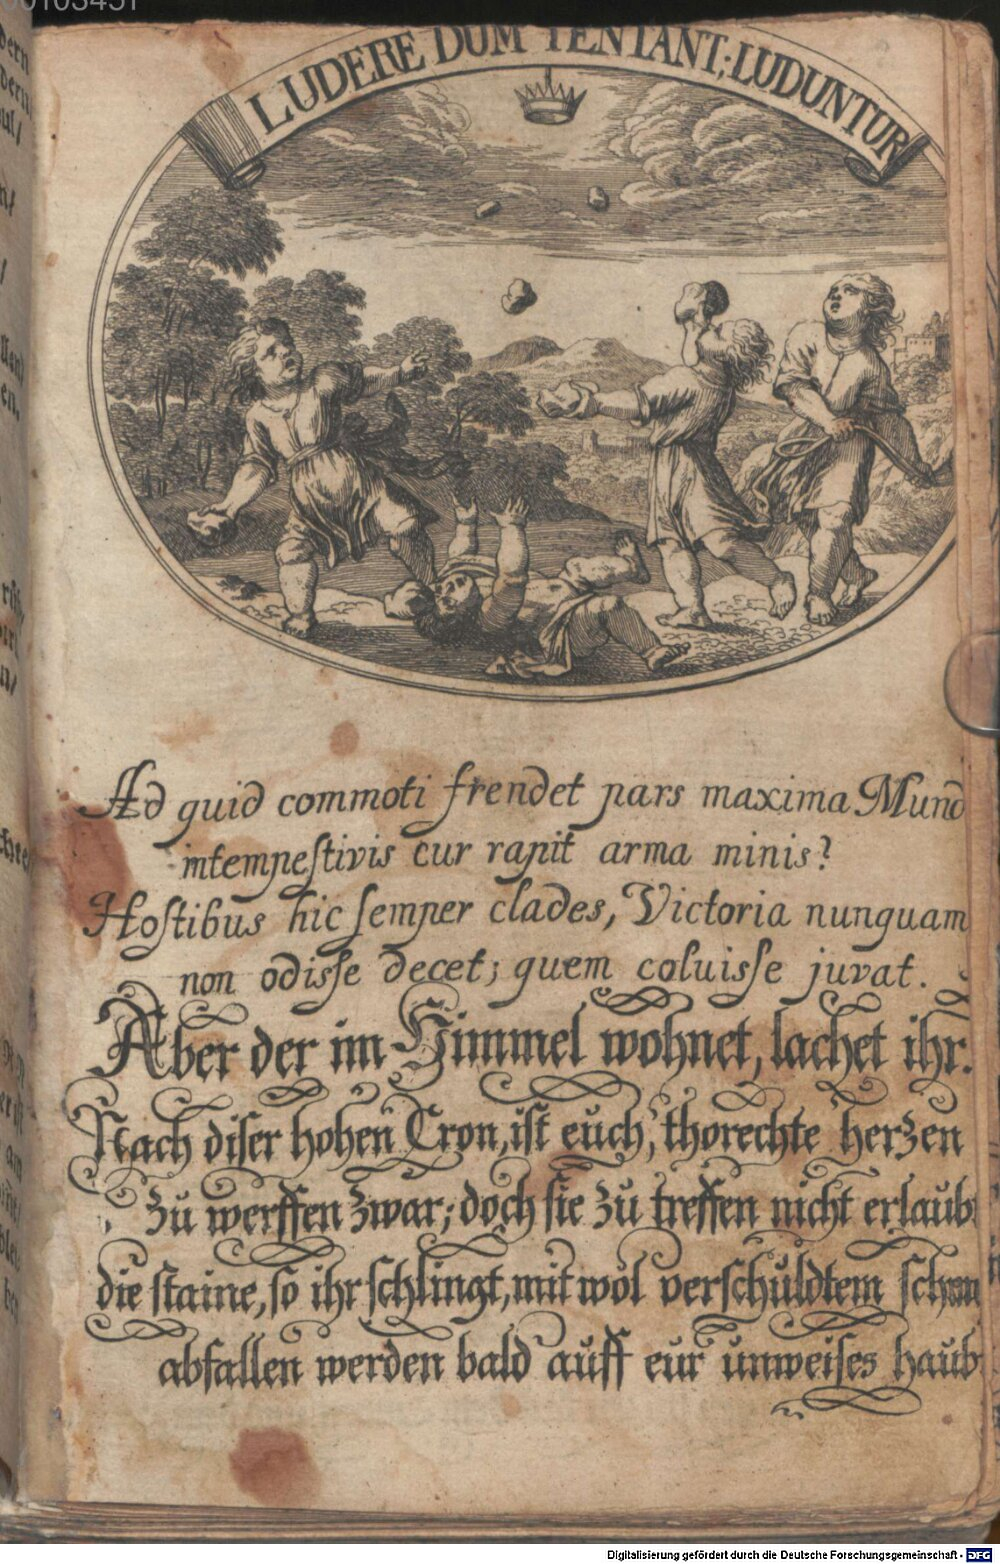 00103451
LUDERE DUM TENTANT; LUDUNTUR
Ad quid commoti frendet pars maxima Mund
intempeſtivis cur rapit arma minis?
Hoſtibus hic ſemper clades, Victoria nunquam
non odiſſe decet; quem coluiſſe juvat.
Aber der im Himmel wohnet, lachet ihr.
Nach diser hohen Cron, ist euch, thorechte herzen
Zu werffen zwar; doch sie zu treffen nicht erlaub
die staine, so ihr schlingt, mit wol verschuldtem schem
abfallen werden bald auff eur unweises haub
Digitalisierung gefördert durch die Deutsche Forschungsgemeinschaft - DFG